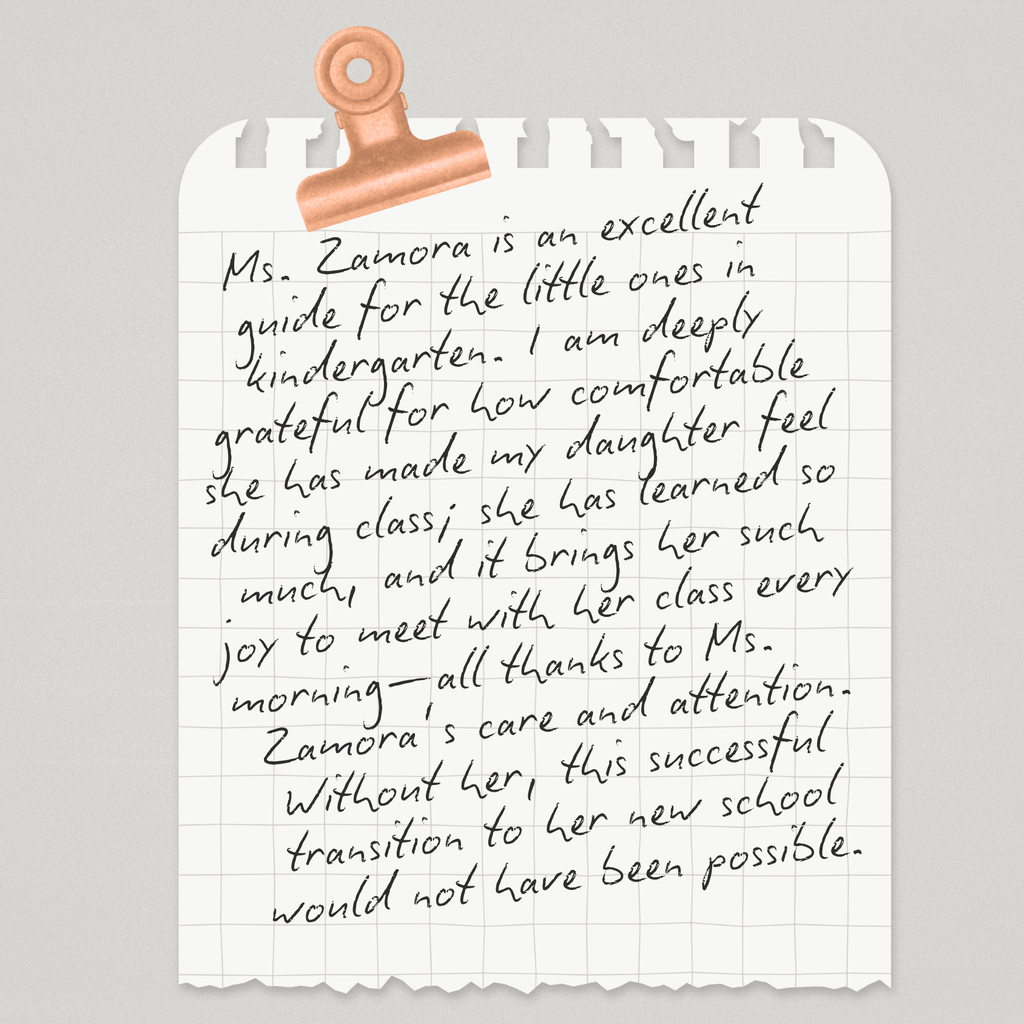 Ms. Zamora is an excellent
guide for the little ones in
kindergarten. I am deeply
grateful for how comfortable
she has made my daughter feel
during class; she has learned so
much, and it brings her such
joy to meet with her class every
morning—all thanks to Ms.
Zamora's care and attention.
Without her, this successful
transition to her new school
would not have been possible.